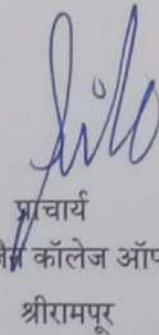 प्राचार्य
जैन कॉलेज ऑफ
श्रीरामपूर